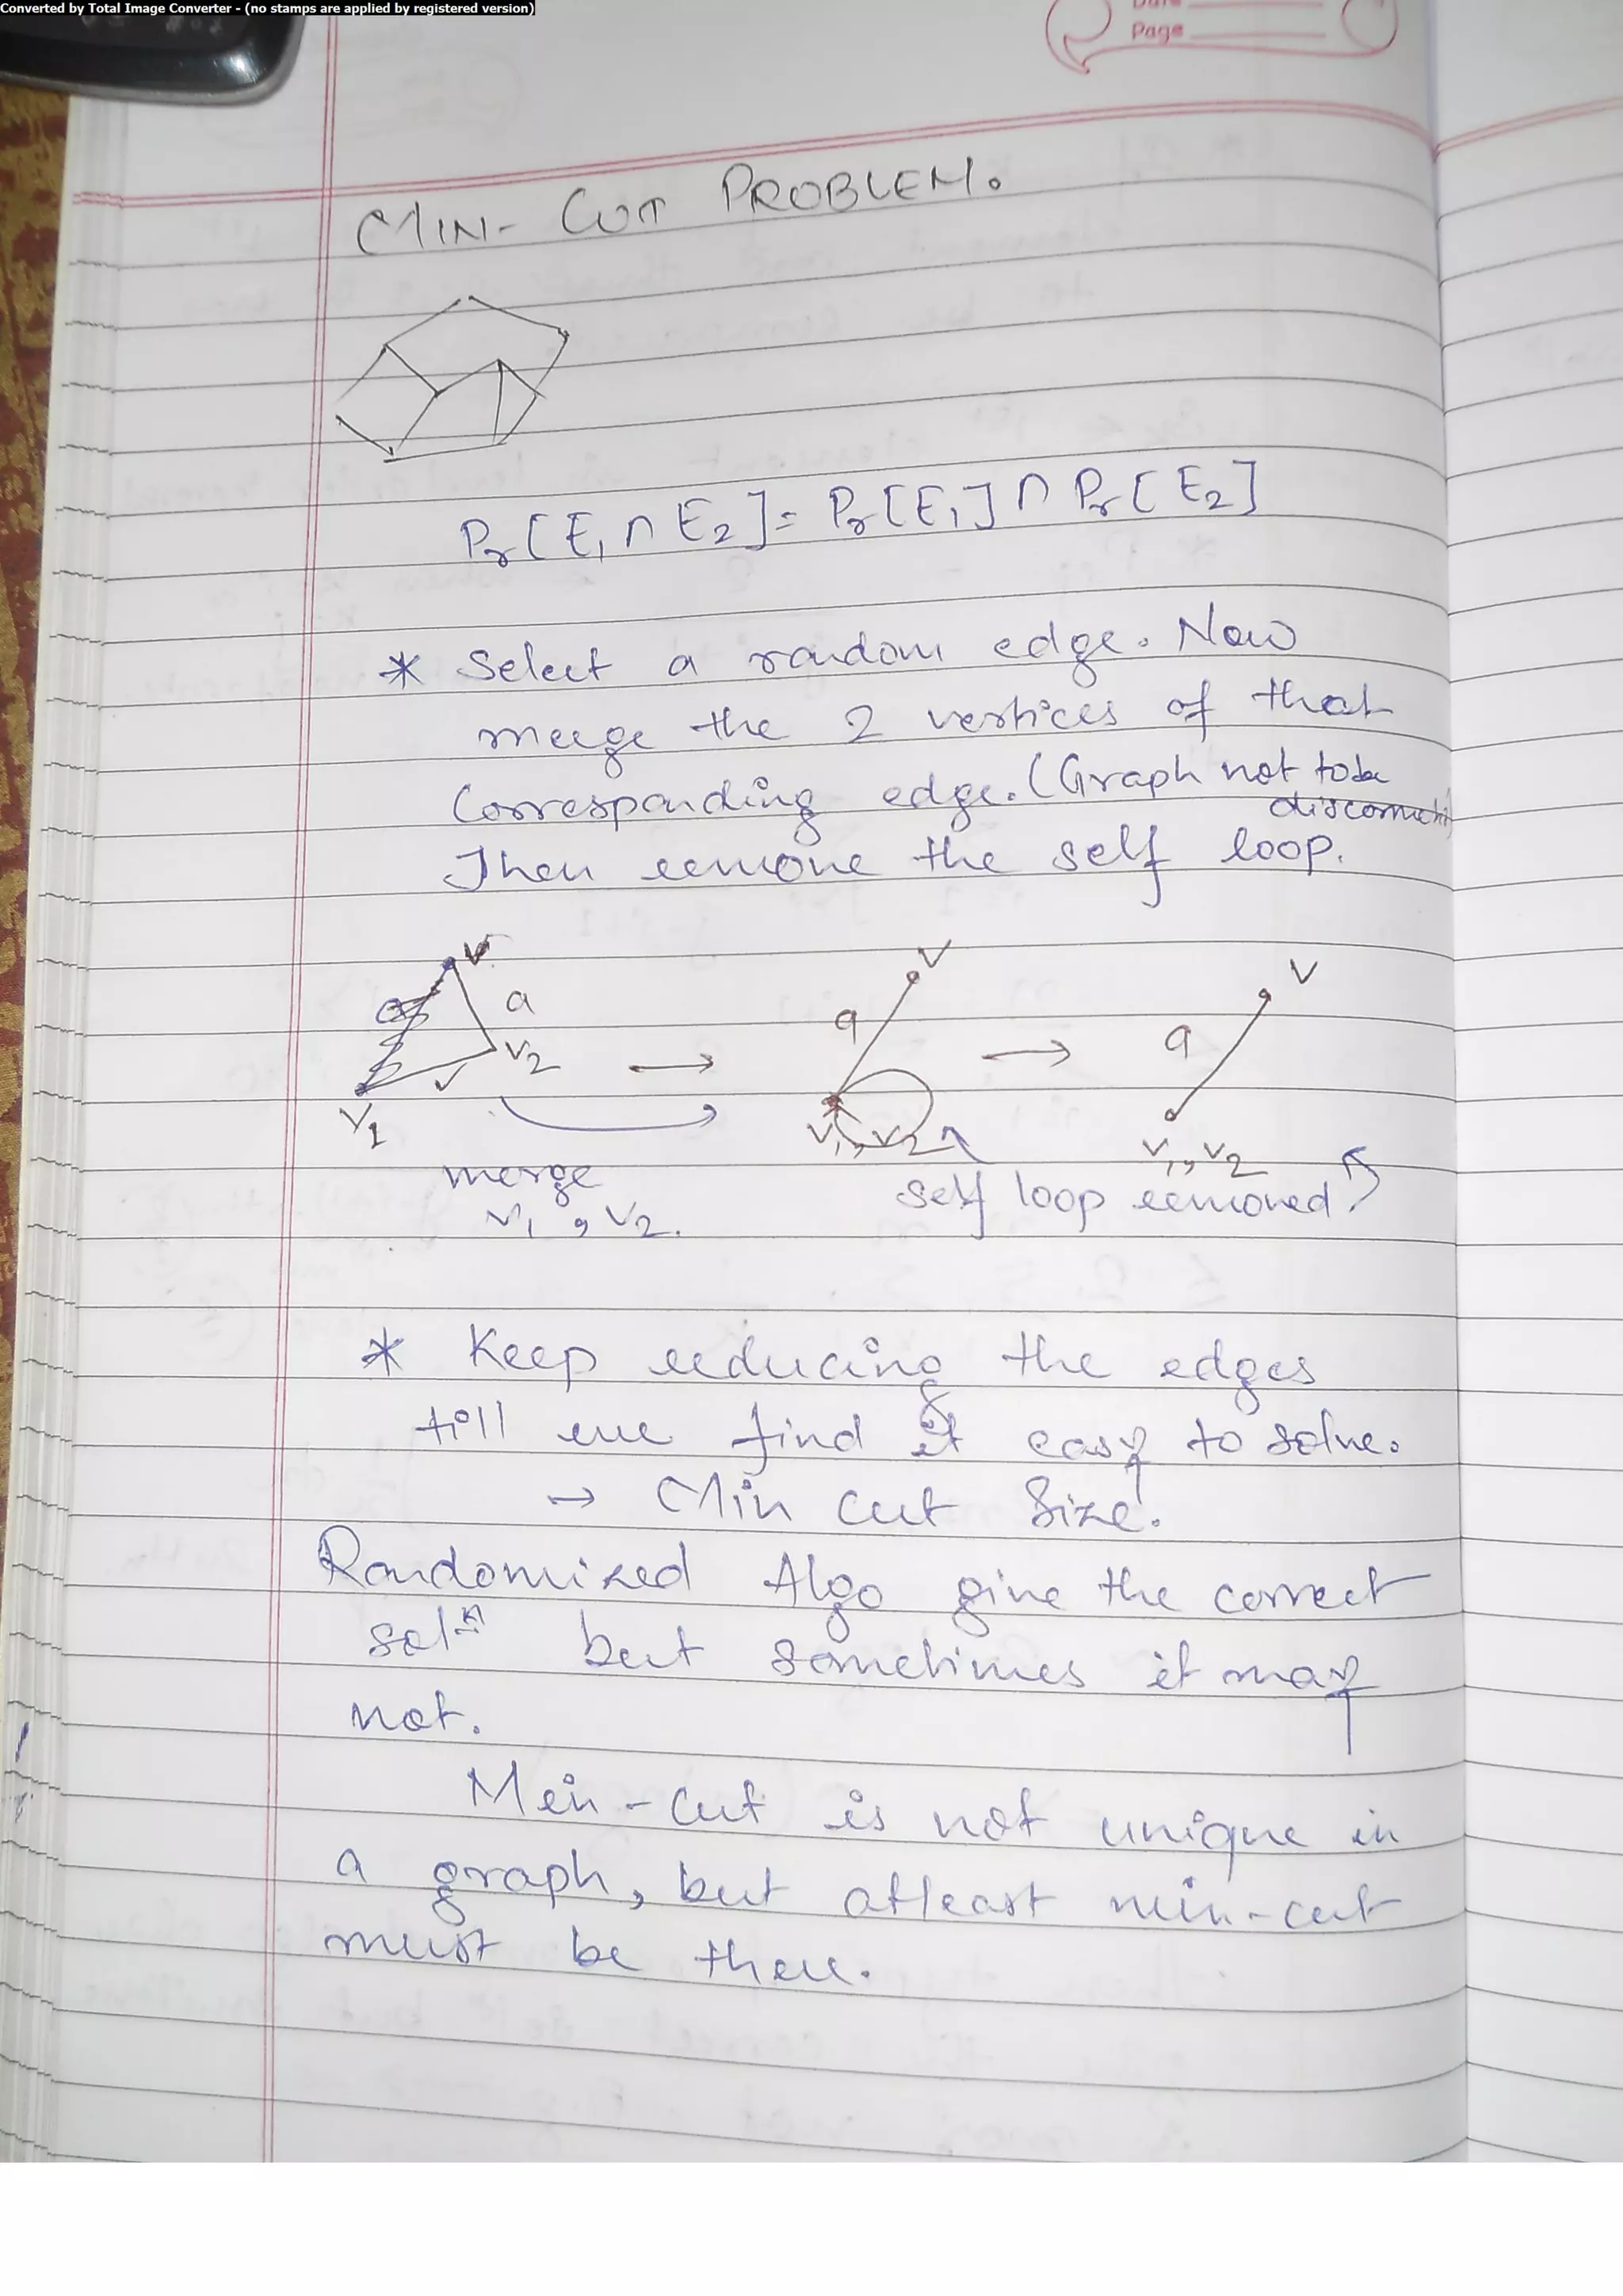 Converted by Total Image Converter - (no stamps are applied by registered version)
Page
MIN- CUT PROBLEM.
Pr[E1 ∩ E2] = Pr[E1] ∩ Pr[E2]
* Select a random edge. Now
merge the 2 vertices of that
corresponding edge. (Graph not to be
disconnected)
Then remove the self loop.
v a v2 v1
v a v1, v2
v a v1, v2
merge
v1, v2.
self loop removed
* Keep reducing the edges
till we find it easy to solve.
→ Min cut size.
Randomized Algo give the correct
soln but sometimes it may
not.
Min-cut is not unique in
a graph, but atleast min-cut
must be there.